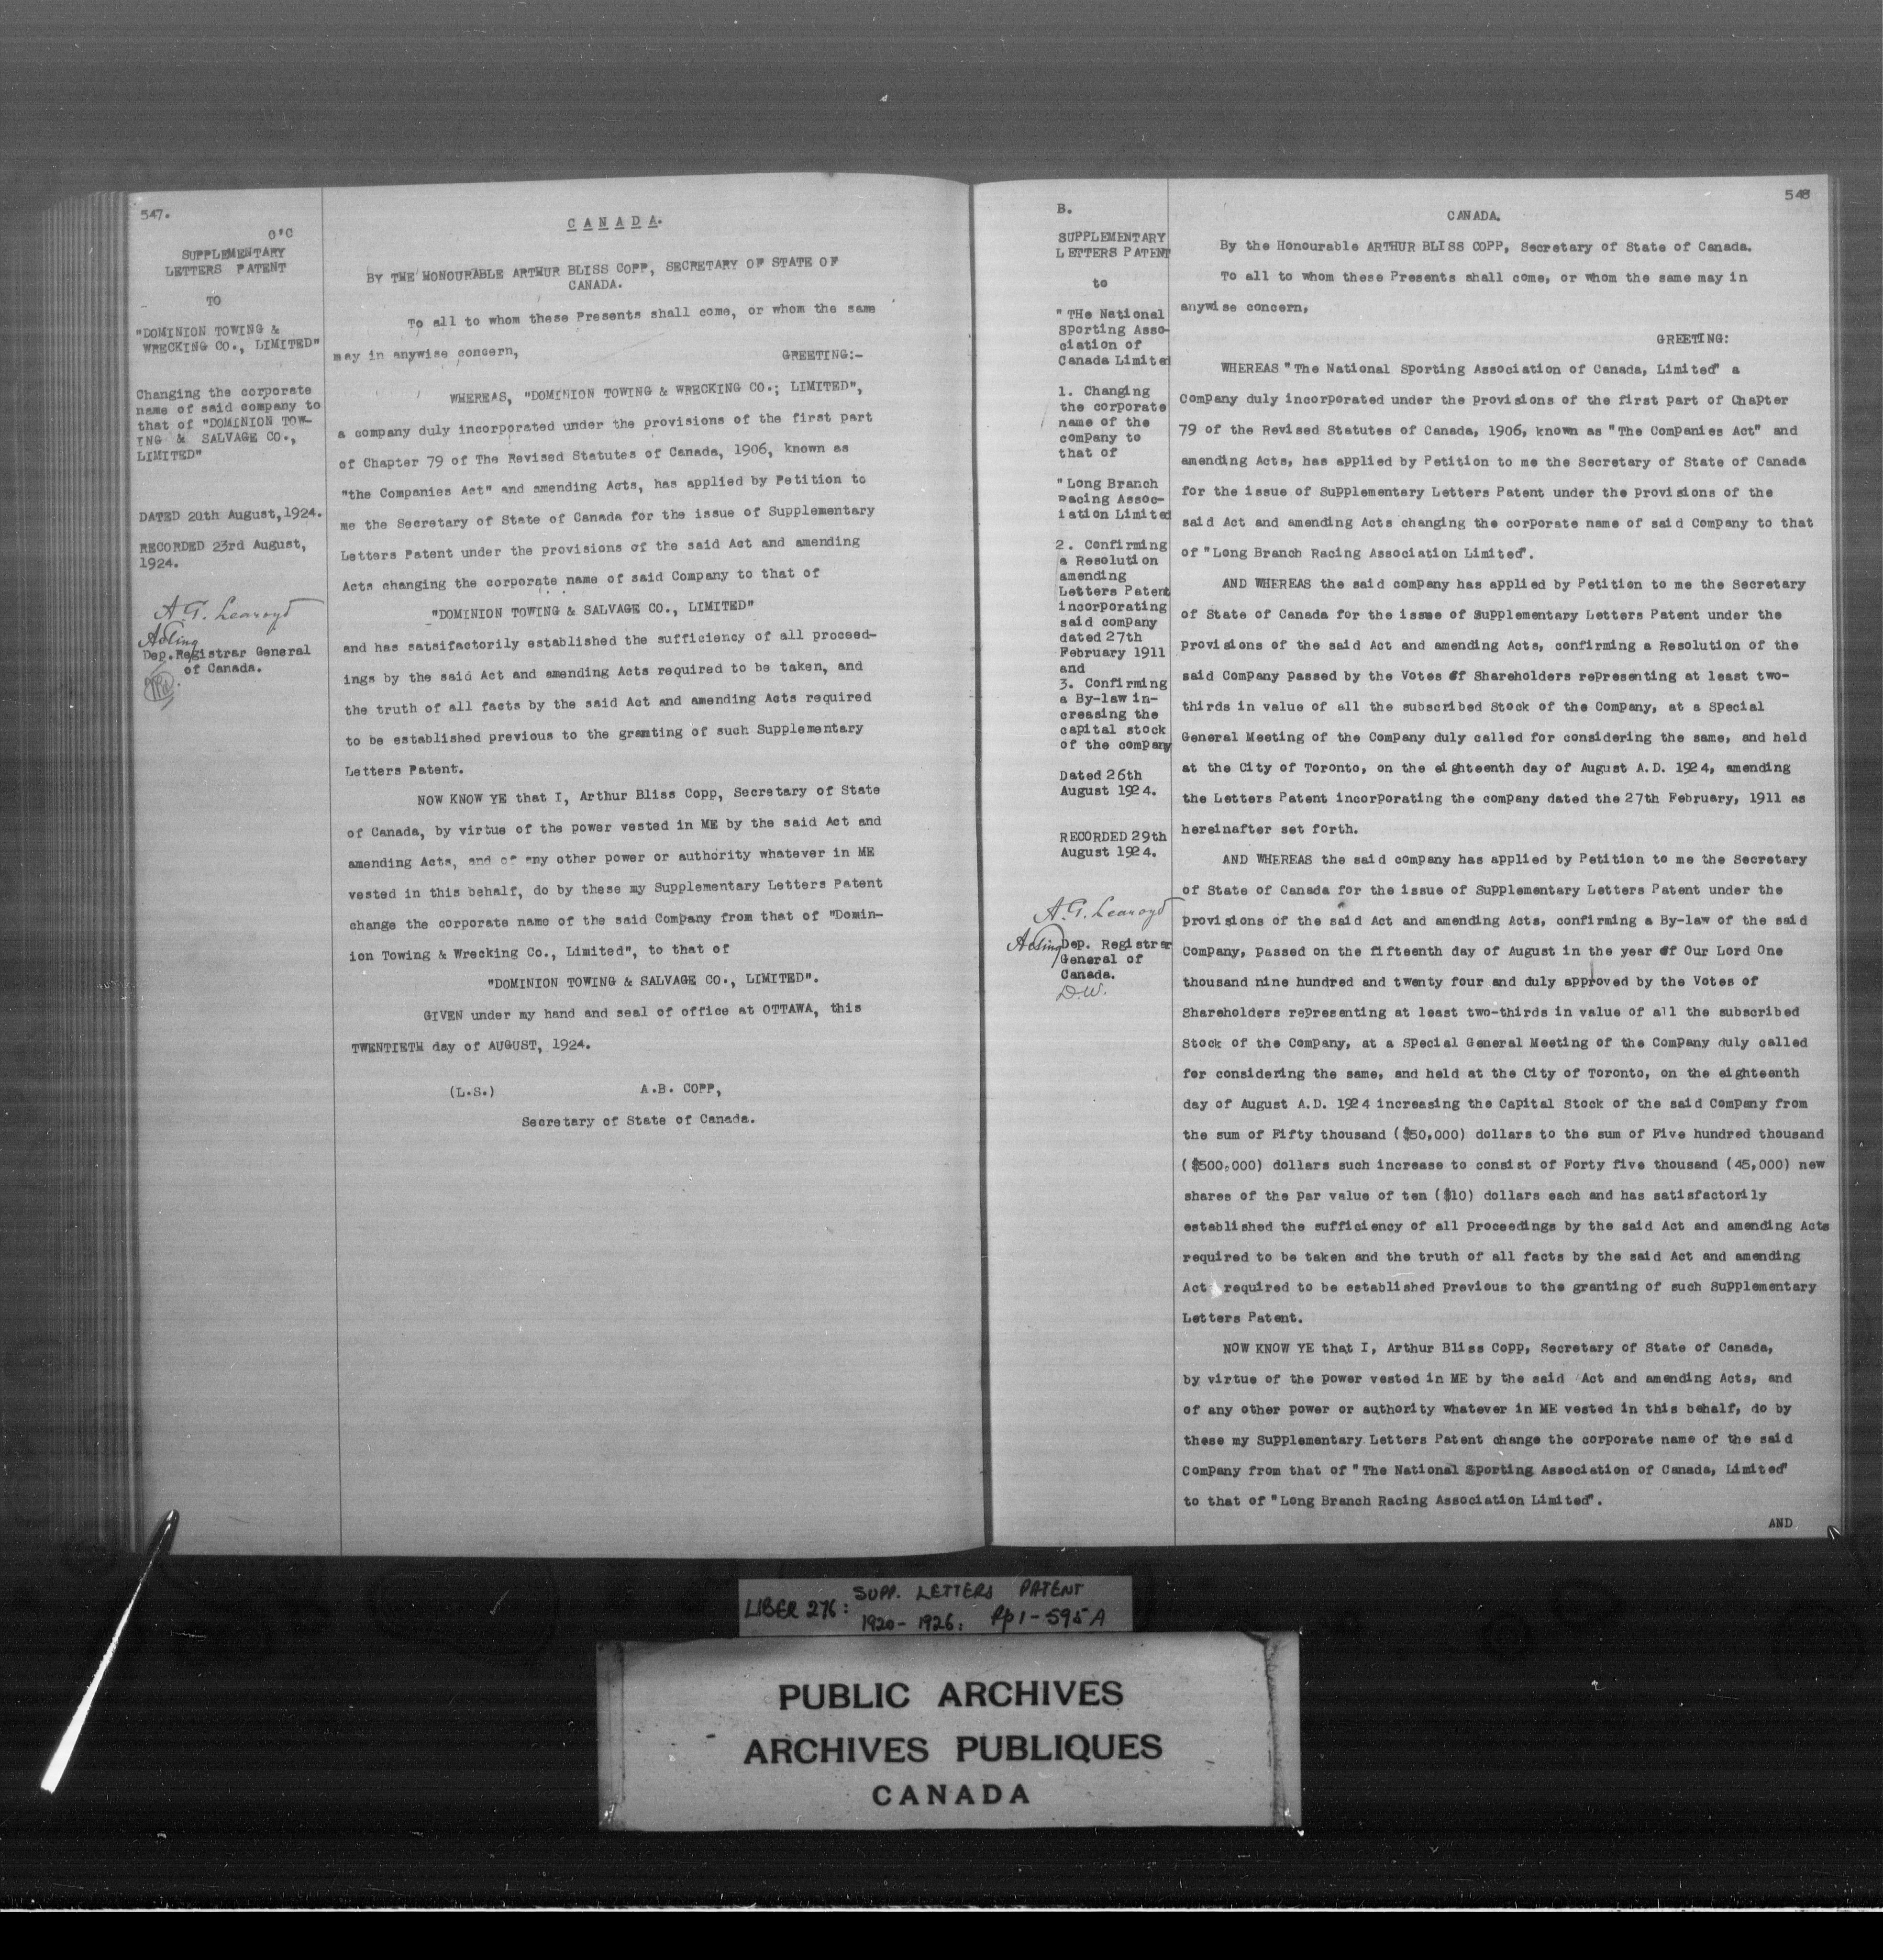 547.
O'C
SUPPLEMENTARY
LETTERS PATENT
TO
"DOMINION TOWING &
WRECKING CO., LIMITED"
Changing the corporate
name of said company to
that of "DOMINION TOW-
ING & SALVAGE CO.,
LIMITED"
DATED 20th August, 1924.
RECORDED 23rd August,
1924.
A. G. Learoyd
Acting
Dep. Registrar General
of Canada.
CANADA.
BY THE HONOURABLE ARTHUR BLISS COPP, SECRETARY OF STATE OF
CANADA.
To all to whom these Presents shall come, or whom the same
may in anywise concern, GREETING:-
WHEREAS, "DOMINION TOWING & WRECKING CO.; LIMITED",
a company duly incorporated under the provisions of the first part
of Chapter 79 of The Revised Statutes of Canada, 1906, known as
"the Companies Act" and amending Acts, has applied by Petition to
me the Secretary of State of Canada for the issue of Supplementary
Letters Patent under the provisions of the said Act and amending
Acts changing the corporate name of said Company to that of
"DOMINION TOWING & SALVAGE CO., LIMITED"
and has satsifactorily established the sufficiency of all proceed-
ings by the said Act and amending Acts required to be taken, and
the truth of all facts by the said Act and amending Acts required
to be established previous to the granting of such Supplementary
Letters Patent.
NOW KNOW YE that I, Arthur Bliss Copp, Secretary of State
of Canada, by virtue of the power vested in ME by the said Act and
amending Acts, and of any other power or authority whatever in ME
vested in this behalf, do by these my Supplementary Letters Patent
change the corporate name of the said Company from that of "Domin-
ion Towing & Wrecking Co., Limited", to that of
"DOMINION TOWING & SALVAGE CO., LIMITED".
GIVEN under my hand and seal of office at OTTAWA, this
TWENTIETH day of AUGUST, 1924.
(L.S.) A.B. COPP,
Secretary of State of Canada.
548
B.
SUPPLEMENTARY
LETTERS PATENT
to
"THe National
Sporting Asso-
ciation of
Canada Limited
1. Changing
the corporate
name of the
company to
that of
"Long Branch
Racing Assoc-
iation Limited
2. Confirming
a Resolution
amending
Letters Patent
incorporating
said company
dated 27th
February 1911
and
3. Confirming
a By-law in-
creasing the
capital stock
of the company
Dated 26th
August 1924.
RECORDED 29th
August 1924.
A. G. Learoyd
Acting Dep. Registrar
General of
Canada.
D.W.
CANADA.
By the Honourable ARTHUR BLISS COPP, Secretary of State of Canada.
To all to whom these Presents shall come, or whom the same may in
anywise concern,
GREETING:
WHEREAS "The National Sporting Association of Canada, Limited" a
Company duly incorporated under the provisions of the first part of Chapter
79 of the Revised Statutes of Canada, 1906, known as "The Companies Act" and
amending Acts, has applied by Petition to me the Secretary of State of Canada
for the issue of Supplementary Letters Patent under the provisions of the
said Act and amending Acts changing the corporate name of said Company to that
of "Long Branch Racing Association Limited".
AND WHEREAS the said company has applied by Petition to me the Secretary
of State of Canada for the issue of Supplementary Letters Patent under the
provisions of the said Act and amending Acts, confirming a Resolution of the
said Company passed by the Votes of Shareholders representing at least two-
thirds in value of all the subscribed Stock of the Company, at a Special
General Meeting of the Company duly called for considering the same, and held
at the City of Toronto, on the eighteenth day of August A.D. 1924, amending
the Letters Patent incorporating the company dated the 27th February, 1911 as
hereinafter set forth.
AND WHEREAS the said company has applied by Petition to me the Secretary
of State of Canada for the issue of Supplementary Letters Patent under the
provisions of the said Act and amending Acts, confirming a By-law of the said
Company, passed on the fifteenth day of August in the year of Our Lord One
thousand nine hundred and twenty four and duly approved by the Votes of
Shareholders representing at least two-thirds in value of all the subscribed
Stock of the Company, at a Special General Meeting of the Company duly called
for considering the same, and held at the City of Toronto, on the eighteenth
day of August A.D. 1924 increasing the Capital Stock of the said Company from
the sum of Fifty thousand ($50,000) dollars to the sum of Five hundred thousand
($500,000) dollars such increase to consist of Forty five thousand (45,000) new
shares of the par value of ten ($10) dollars each and has satisfactorily
established the sufficiency of all proceedings by the said Act and amending Acts
required to be taken and the truth of all facts by the said Act and amending
Act required to be established previous to the granting of such Supplementary
Letters Patent.
NOW KNOW YE that I, Arthur Bliss Copp, Secretary of State of Canada,
by virtue of the power vested in ME by the said Act and amending Acts, and
of any other power or authority whatever in ME vested in this behalf, do by
these my Supplementary Letters Patent change the corporate name of the said
Company from that of "The National Sporting Association of Canada, Limited"
to that of "Long Branch Racing Association Limited".
AND
LIBER 276: SUPP. LETTERS PATENT
1920-1926: Pp 1-595A
PUBLIC ARCHIVES
ARCHIVES PUBLIQUES
CANADA